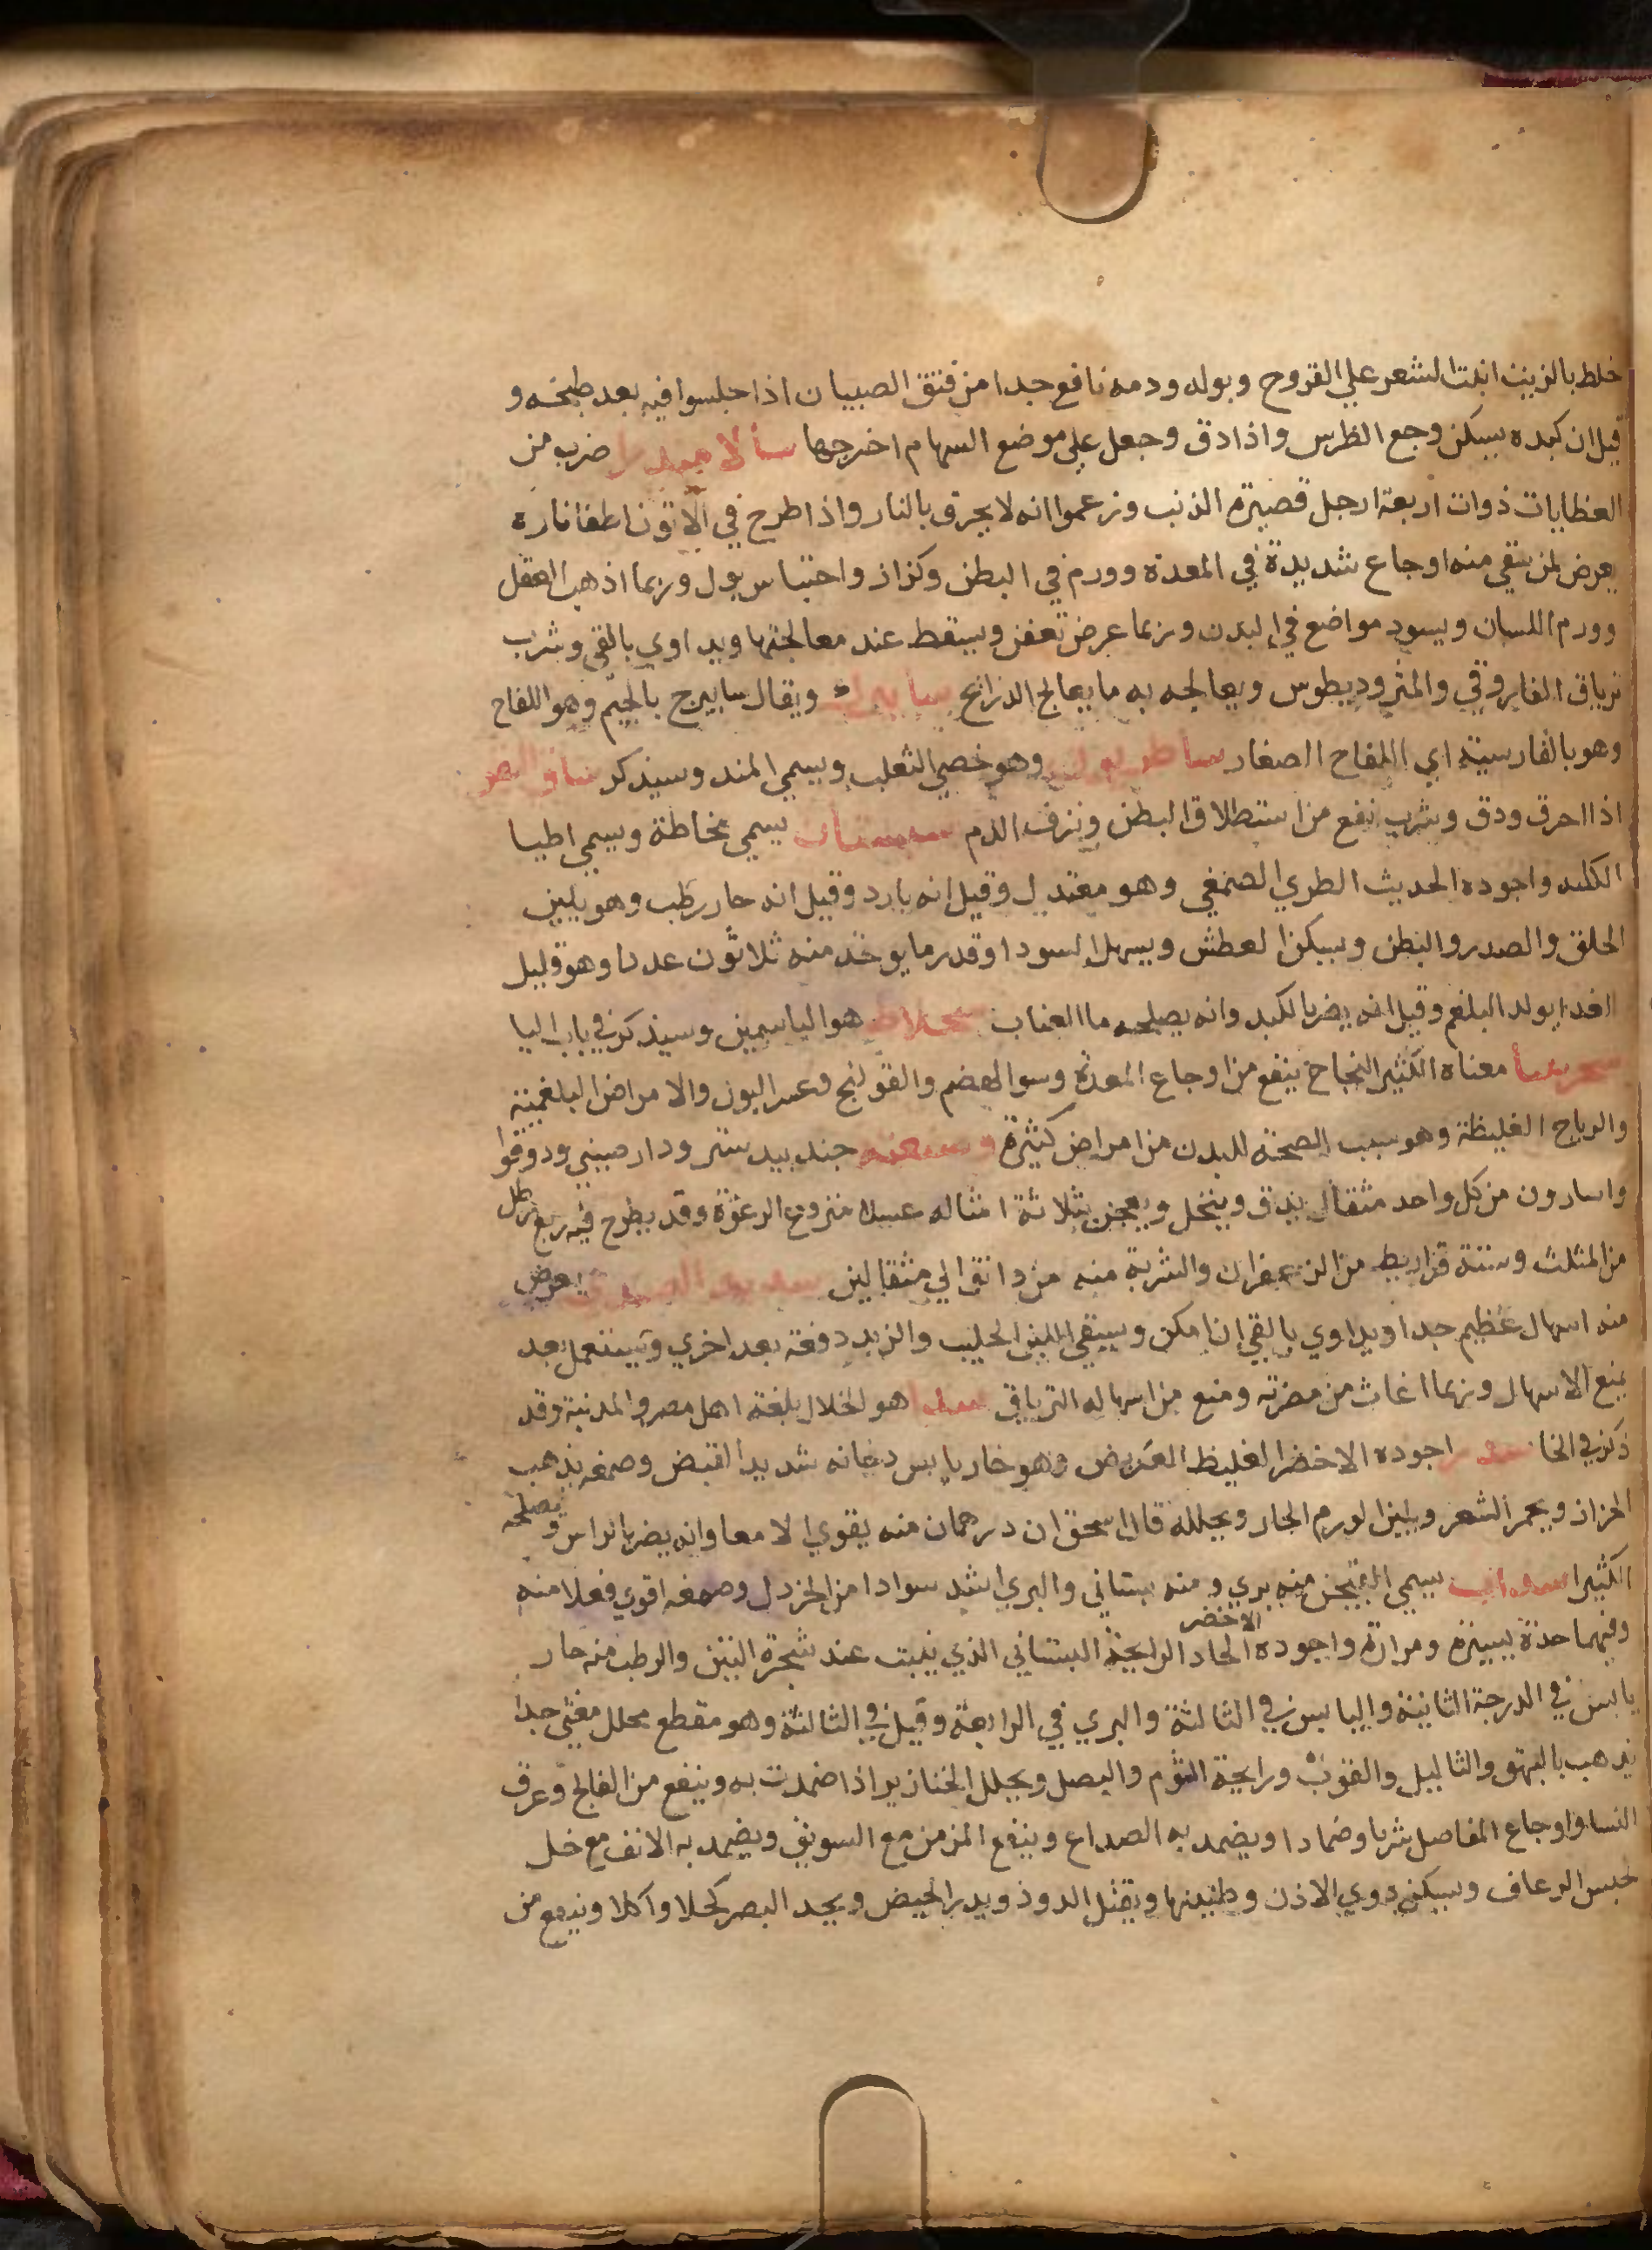 خلط بالزيت انبت الشعر علي القروح وبوله ودمه نافع جدا من فتق الصبيان اذا جلسوا فيه بعد طبخه و
قيل ان كبده يسكن وجع الظرس واذا دق وجعل علي موضع السهام اخرجها سالامندرا ضرب من
العظايات ذوات اربعة ارجل قصيرة الذنب وزعموا انه لا يحرق بالنار واذا طرح في الاتون اطفا ناره
يعرض لمن سقي منه اوجاع شديدة في المعدة وورم في البطن وكزاز واحتباس بول وربما اذهب العقل
وورم اللسان ويسود مواضع في البدن وربما عرض تعفن وسقط عند معالجتها ويداوي بالقي وشرب
ترياق الفاروقي والمثروديطوس ويعالجه به ما يعالج الذراريح سابيزك ويقال سابيزج بالجيم وهو اللفاح
وهو بالفارسية اي اللفاح الصغار وهو خصي الثعلب ويسمي المند وسيذكر
اذا احرق ودق وشرب نفع من استطلاق البطن ونزف الدم سبستان يسمي مخاطة ويسمي اطبا
الكلبه واجوده الحديث الطري الصمغي وهو معتدل وقيل انه بارد وقيل انه حار رطب وهو يلين
الحلق والصدر والبطن ويسكن العطش ويسهل السودا وقدر ما يوخذ منه ثلاثون عددا وهو قليل
الغدا يولد البلغم وقيل انه يضر بالكبد وانه يصلحه ما العناب سجلاط هو الياسمين وسيذكر في باب اليا
سجرينا معناه الكثير النجاح ينفع من اوجاع المعدة وسو الهضم والقولنج وعسر البول والامراض البلغمية
والرياح الغليظة وهو سبب الصحة للبدن من امراض كثيرة جندبيدستر ودارصيني ودوقوا
واسارون من كل واحد مثقال يدق وينخل ويعجن بثلاثة امثاله عسلا منزوع الرغوة وقد يطرح فيه ربع رطل
من المثلث وستة قراريط من الزعفران والشربة منه من دانق الي مثقالين يعرض
منه اسهال عظيم جدا ويداوي بالقي ان امكن ويسقي اللبن الحليب والزبد دفعة بعد اخري ويستعمل بعد
يمنع الاسهال وربما اغاث من مضرته ومنع من اسهاله الترياق هو الخلال بلغة اهل مصر والمدينة وقد
ذكر في الخا اجوده الاخضر الغليظ العريض وهو حار يابس دخانه شديد القبض وصمغه يذهب
الحزاز ويحمر الشعر ويلين الورم الحار ويحلله قال اسحق ان درهمان منه يقوي الامعا وانه يضر بالراس ويصلحه
الكثيرا سداب يسمي الفيجن منه بري ومنه بستاني والبري اشد سوادا من الخردل وصمغه اقوي فعلا منه
وفيهما حدة يسيرة ومرارة واجوده الاخضر الحاد الرايحة البستاني الذي ينبت عند شجرة التين والرطب منه حار
يابس في الدرجة الثانية واليابس في الثالثة والبري في الرابعة وقيل في الثالثة وهو مقطع محلل مفشي جدا
يذهب بالبهق والثاليل والقوب ورايحة الثوم والبصل ويحلل الخنازير اذا ضمدت به وينفع من الفالج وعرق
النسا واوجاع المفاصل شربا وضمادا ويضمد به الصداع وينفع المزمن مع السويق ويضمد به الانف مع خل
لحبس الرعاف ويسكن دوي الاذن وطنينها ويقتل الدود ويدر الحيض ويحد البصر كحلا واكلا وينفع من